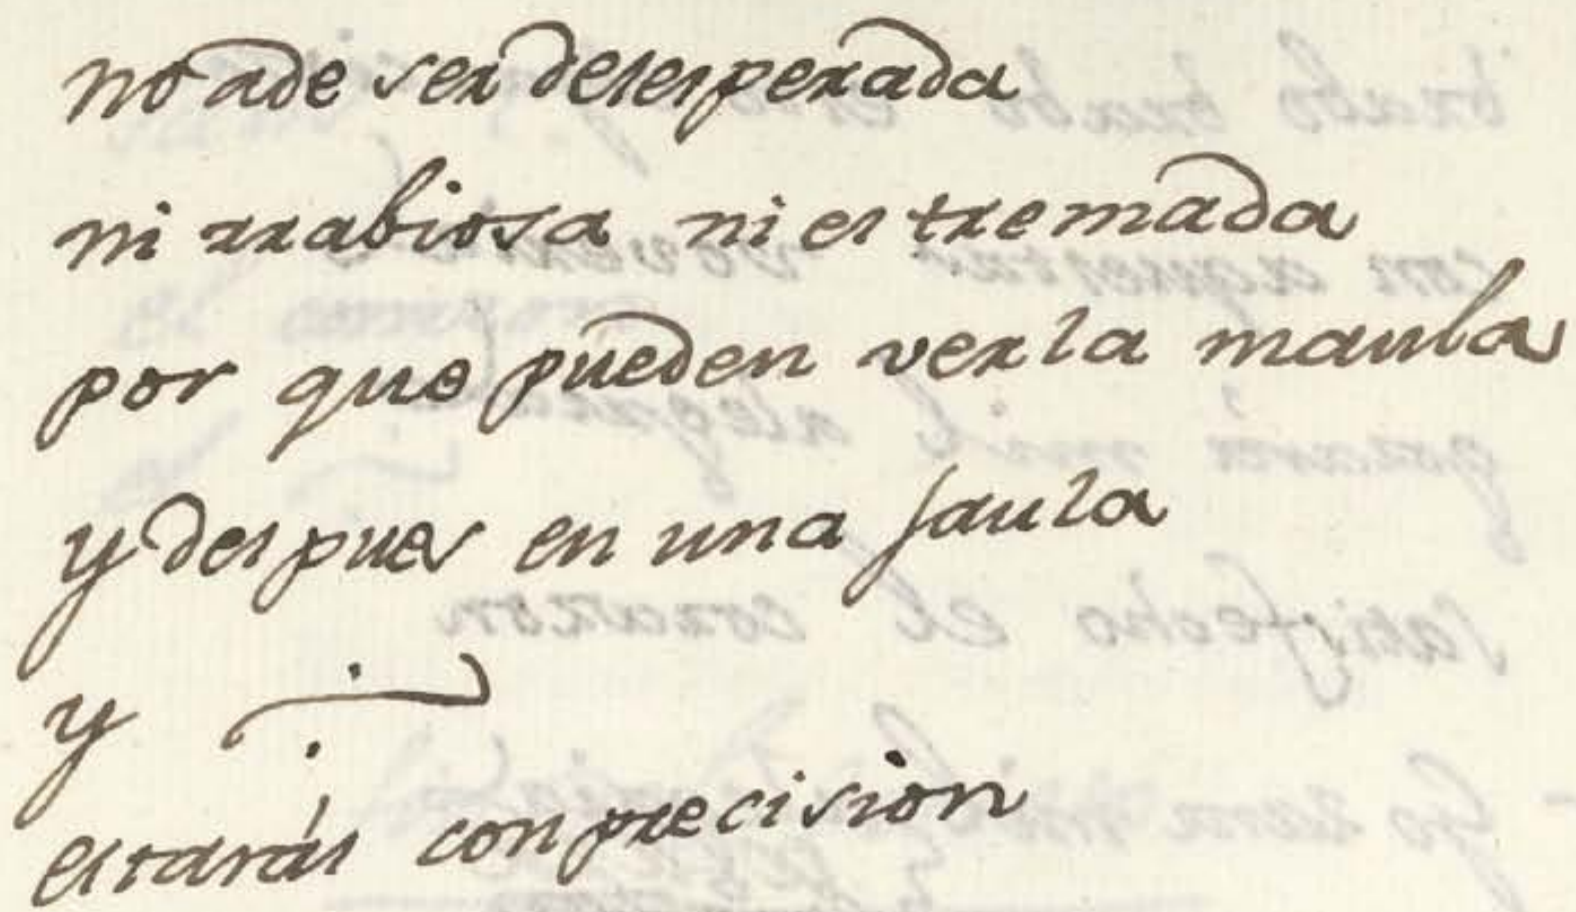 no ade ser desesperada
ni rrabiosa ni estremada
por que pueden ver la maula
y despues en una jaula
y
estarás con precision